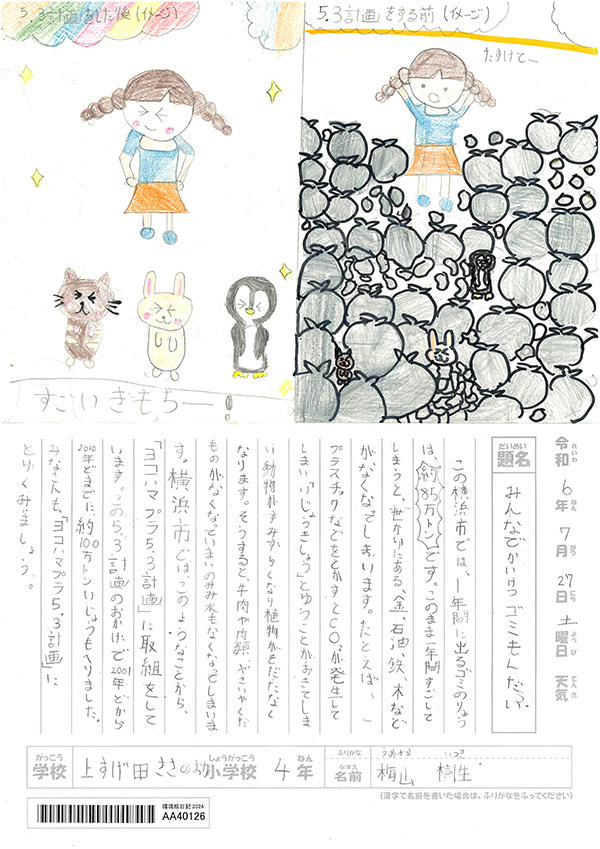 5.3計画をした後(イメージ)
すごいきもちー!
5.3計画をする前(イメージ)
たすけてー
令和6年7月27日土曜日 天気
れいわ ねん がつ にち ようび てんき
だいめい
題名
みんなでかいけつ ゴミもんだい?
この横浜市では、一年間に出るゴミのりょう
は、約85万トンです。このまま一年間すごして
しまうと、世かいにある「金、石油、鉄、木など
がなくなってしまいます。たとえば、こ
プラスチックなどをとかすとCO2が発生して
しまい「いじょうきしょう」とゆうことがおきてしま
い動物がすみずらくなり植物がそだたなく
なります。そうすると、牛肉や肉類やさいやくだ
ものがなくなってしまいのみ水もなくなってしまいま
す。横浜市ではこのようなことから、
「ヨコハマプラ5.3計画」に取組をして
います。この5.3計画のおかげで2001年どから
2010年どまでに、約100万トンいじょうもへりました。
みなさんも、「ヨコハマプラ5.3計画」に
とりくみましょう。
がっこう しょうがっこう ねん ふりがな うめやま いつき
学校 上すげ田ささの丘小学校 4年 なまえ 名前 梅山 樹生
(漢字で名前を書いた場合は、ふりがなをふってください)
環境絵日記2024
AA40126